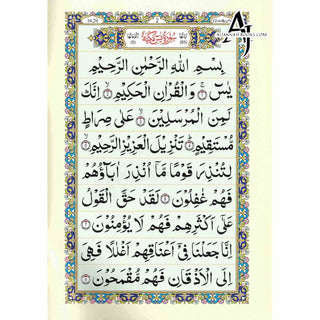 AJ
ALJANNATBOOKS.COM
2
سُوْرَةُ يٰسٓ مَكِّيَّةٌ
بِسْمِ اللّٰهِ الرَّحْمٰنِ الرَّحِيْمِ
يٰسٓ ۚ ﴿١﴾ وَالْقُرْاٰنِ الْحَكِيْمِ ۙ ﴿٢﴾ اِنَّكَ
لَمِنَ الْمُرْسَلِيْنَ ۙ ﴿٣﴾ عَلٰى صِرَاطٍ
مُّسْتَقِيْمٍ ؕ ﴿٤﴾ تَنْزِيْلَ الْعَزِيْزِ الرَّحِيْمِ ۙ ﴿٥﴾
لِتُنْذِرَ قَوْمًا مَّاۤ اُنْذِرَ اٰبَآؤُهُمْ
فَهُمْ غٰفِلُوْنَ ﴿٦﴾ لَقَدْ حَقَّ الْقَوْلُ
عَلٰۤى اَكْثَرِهِمْ فَهُمْ لَا يُؤْمِنُوْنَ ﴿٧﴾
اِنَّا جَعَلْنَا فِيْۤ اَعْنَاقِهِمْ اَغْلٰلًا فَهِيَ
اِلَى الْاَذْقَانِ فَهُمْ مُّقْمَحُوْنَ ﴿٨﴾